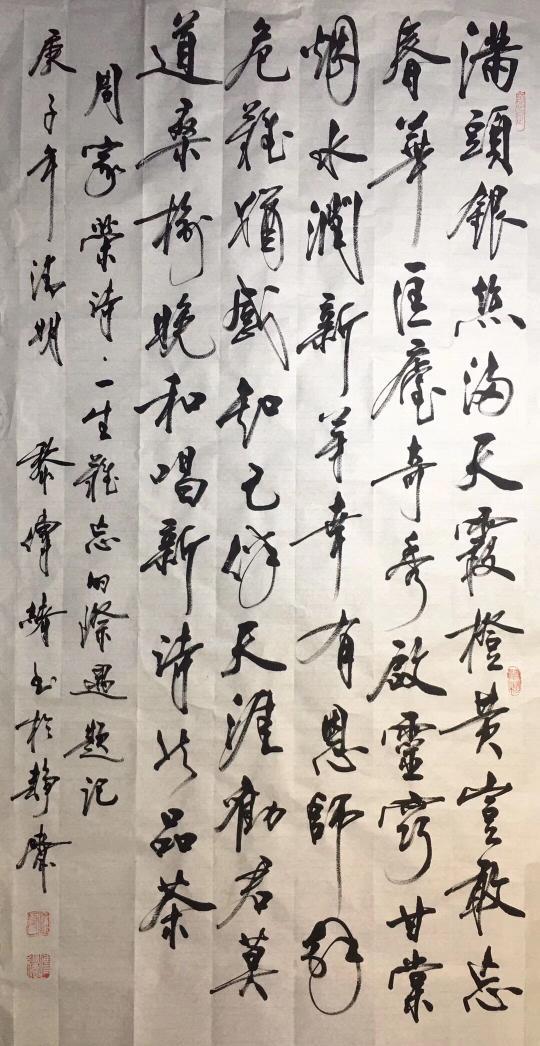 滿頭銀絲滿天霞橙黃豈敢忘
春華匡廬奇秀啟靈竅甘棠
烟水潤新芽幸有恩師解
危難猶感知己伴天涯勸君莫
道桑榆晚和唱新詩共品茶
周家榮詩·一生難忘的際遇題記
庚子年清明 黎偉績書於靜齋